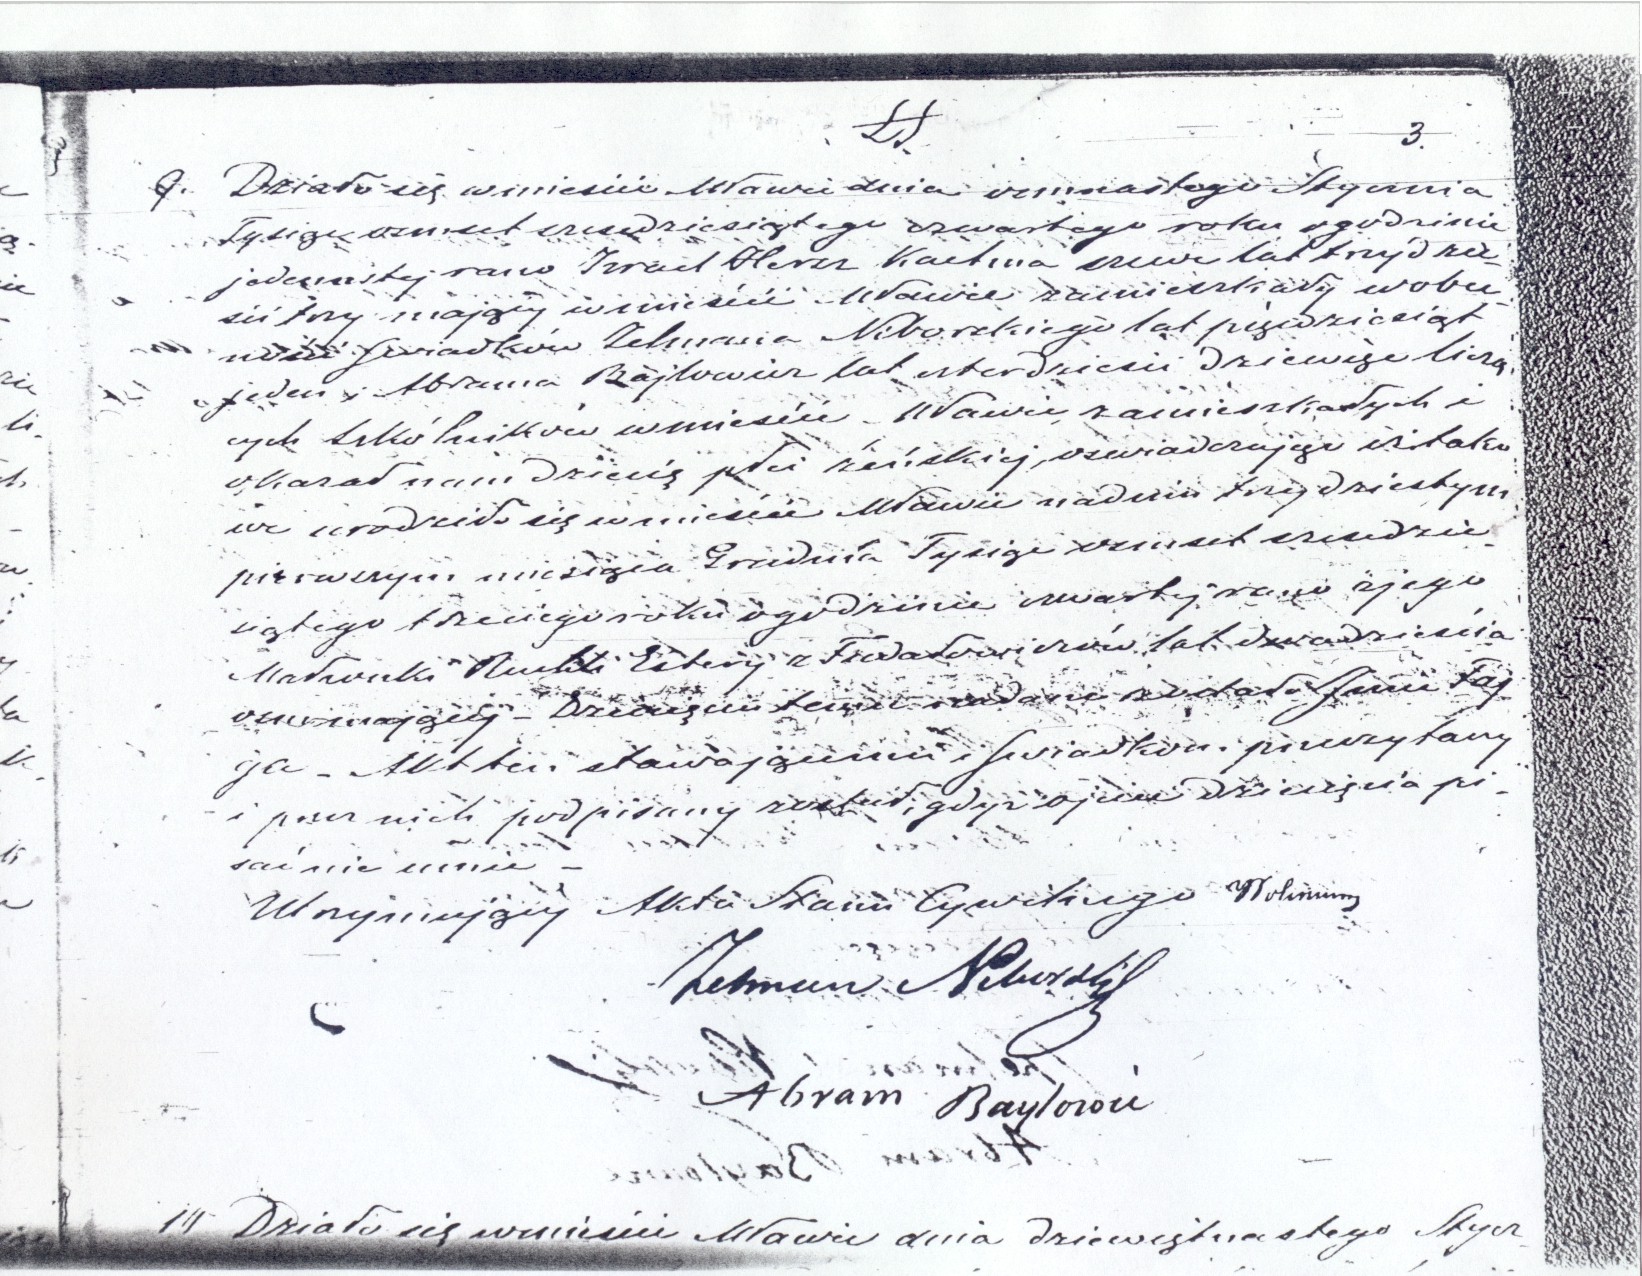 3.
9. Działo się w mieście Mławie dnia ośmnastego Stycznia
Tysiąc ośmset sześćdziesiątego czwartego roku o godzinie
jedenastej rano Izrael Hersz szewc lat trzydzie-
ści trzy mający w mieście Mławie zamieszkały w obec-
ności Świadków Zelmana Niborskiego lat pięćdziesiąt
jeden i Abrama Bajlowicz lat czterdzieści dziewięć liczą-
cych szkólników w mieście Mławie zamieszkałych i
okazał nam dziecię płci żeńskiej, oświadczając iż tako-
we urodziło się w mieście Mławie na dniu trzydziestym
pierwszym miesiąca Grudnia Tysiąc ośmset sześćdzie-
siątego trzeciego roku o godzinie czwartej rano z jego
Małżonki Ruchli Estery z lat dwadzieścia
ośm mającej – Dziecięciu temu nadane zostało Imie Faj-
ga – Akt ten stawającemu i Świadkom przeczytany
i przez nich podpisany został, gdyż ojciec dziecięcia pi-
sać nie umie –
Utrzymujący Akta Stanu Cywilnego
Zelman Niborski
Abram Baylowic
Działo się w mieście Mławie dnia dziewiętnastego Stycz-